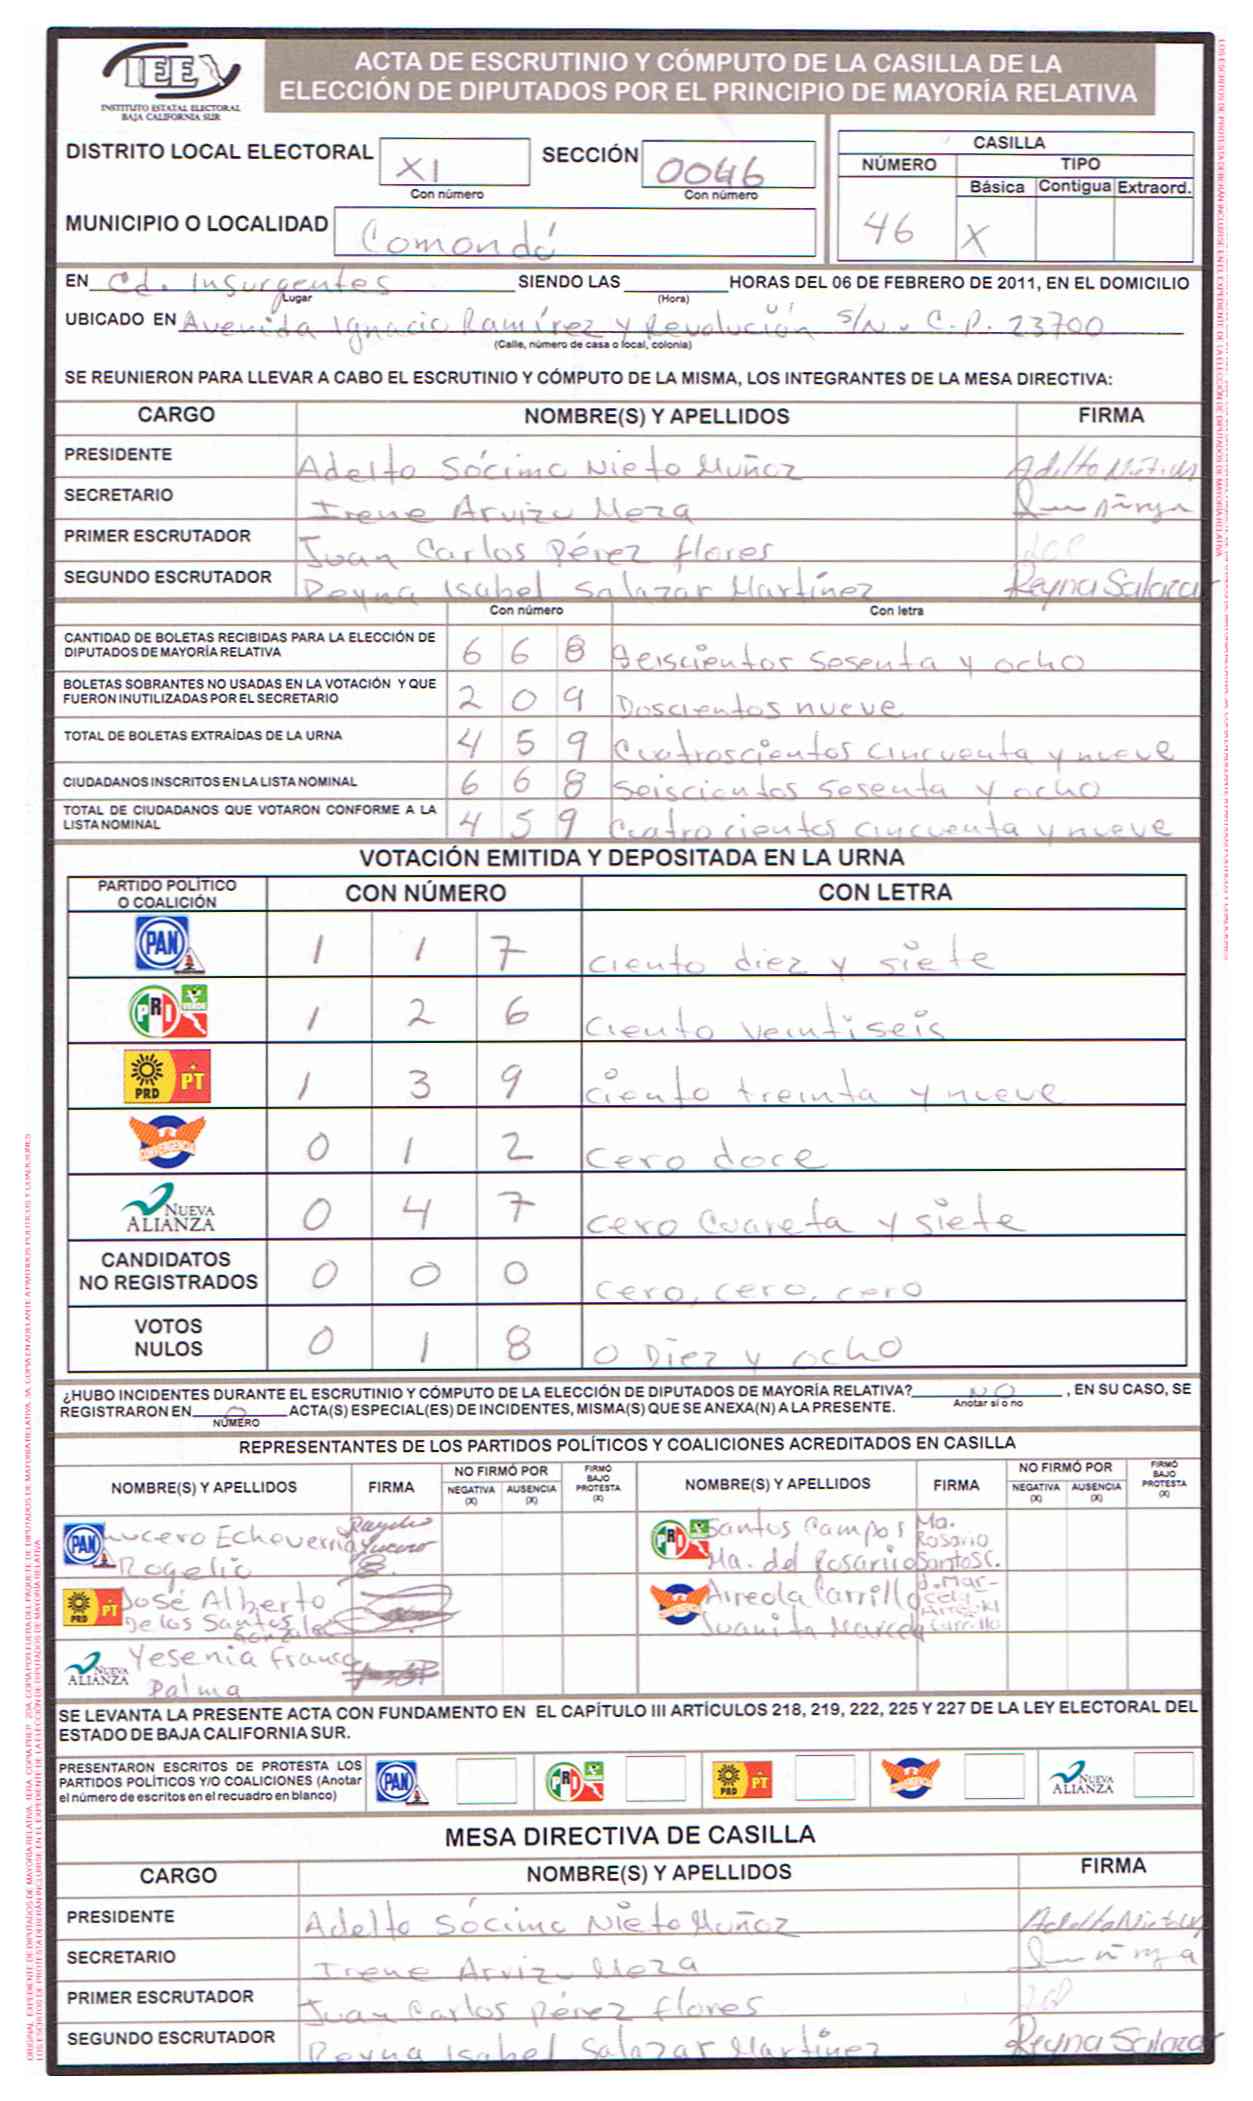 IEE
INSTITUTO ESTATAL ELECTORAL
BAJA CALIFORNIA SUR
ACTA DE ESCRUTINIO Y CÓMPUTO DE LA CASILLA DE LA
ELECCIÓN DE DIPUTADOS POR EL PRINCIPIO DE MAYORÍA RELATIVA
DISTRITO LOCAL ELECTORAL XI SECCIÓN 0046
Con número Con número
MUNICIPIO O LOCALIDAD Comondú
CASILLA
NÚMERO TIPO
Básica Contigua Extraord.
46 X
EN Cd. Insurgentes SIENDO LAS HORAS DEL 06 DE FEBRERO DE 2011, EN EL DOMICILIO
Lugar (Hora)
UBICADO EN Avenida Ignacio Ramírez y Revolución S/N. C.P. 23700
(Calle, número de casa o local, colonia)
SE REUNIERON PARA LLEVAR A CABO EL ESCRUTINIO Y CÓMPUTO DE LA MISMA, LOS INTEGRANTES DE LA MESA DIRECTIVA:
CARGO NOMBRE(S) Y APELLIDOS FIRMA
PRESIDENTE Adelfo Sócimo Nieto Muñoz
SECRETARIO Irene Arvizu Meza
PRIMER ESCRUTADOR Juan Carlos Pérez flores
SEGUNDO ESCRUTADOR Reyna Isabel Salazar Martínez Reyna Salazar
Con número Con letra
CANTIDAD DE BOLETAS RECIBIDAS PARA LA ELECCIÓN DE
DIPUTADOS DE MAYORÍA RELATIVA 6 6 8 Seiscientos Sesenta y ocho
BOLETAS SOBRANTES NO USADAS EN LA VOTACIÓN Y QUE
FUERON INUTILIZADAS POR EL SECRETARIO 2 0 9 Doscientos nueve
TOTAL DE BOLETAS EXTRAÍDAS DE LA URNA 4 5 9 Cuatroscientos cincuenta y nueve
CIUDADANOS INSCRITOS EN LA LISTA NOMINAL 6 6 8 Seiscientos Sesenta y ocho
TOTAL DE CIUDADANOS QUE VOTARON CONFORME A LA
LISTA NOMINAL 4 5 9 Cuatrocientos cincuenta y nueve
VOTACIÓN EMITIDA Y DEPOSITADA EN LA URNA
PARTIDO POLÍTICO
O COALICIÓN CON NÚMERO CON LETRA
PAN 1 1 7 ciento diez y siete
PRI VERDE 1 2 6 ciento veintiseis
PRD PT 1 3 9 ciento treinta y nueve
CONVERGENCIA 0 1 2 cero doce
NUEVA ALIANZA 0 4 7 cero cuareta y siete
CANDIDATOS
NO REGISTRADOS 0 0 0 cero, cero, cero
VOTOS
NULOS 0 1 8 0 Diez y ocho
¿HUBO INCIDENTES DURANTE EL ESCRUTINIO Y CÓMPUTO DE LA ELECCIÓN DE DIPUTADOS DE MAYORÍA RELATIVA? NO, EN SU CASO, SE
Anotar sí o no
REGISTRARON EN 0 ACTA(S) ESPECIAL(ES) DE INCIDENTES, MISMA(S) QUE SE ANEXA(N) A LA PRESENTE.
NÚMERO
REPRESENTANTES DE LOS PARTIDOS POLÍTICOS Y COALICIONES ACREDITADOS EN CASILLA
NOMBRE(S) Y APELLIDOS FIRMA NO FIRMÓ POR NEGATIVA (X) AUSENCIA (X) FIRMÓ BAJO PROTESTA (X) NOMBRE(S) Y APELLIDOS FIRMA NO FIRMÓ POR NEGATIVA (X) AUSENCIA (X) FIRMÓ BAJO PROTESTA (X)
PAN Lucero Echeverria PRI Santos Campos Ma. Rosario
Rogelio Ma. del Rosario Santos C.
PRD PT José Alberto CONVERGENCIA Arreola Carrillo
De los Santos González Juanita Marcela Carrillo
NUEVA ALIANZA Yesenia Franco
Palma
SE LEVANTA LA PRESENTE ACTA CON FUNDAMENTO EN EL CAPÍTULO III ARTÍCULOS 218, 219, 222, 225 Y 227 DE LA LEY ELECTORAL DEL
ESTADO DE BAJA CALIFORNIA SUR.
PRESENTARON ESCRITOS DE PROTESTA LOS
PARTIDOS POLÍTICOS Y/O COALICIONES (Anotar
el número de escritos en el recuadro en blanco) PAN PRI PRD PT CONVERGENCIA NUEVA ALIANZA
MESA DIRECTIVA DE CASILLA
CARGO NOMBRE(S) Y APELLIDOS FIRMA
PRESIDENTE Adelfo Sócimo Nieto Muñoz
SECRETARIO Irene Arvizu Meza
PRIMER ESCRUTADOR Juan Carlos Pérez flores
SEGUNDO ESCRUTADOR Reyna Isabel Salazar Martínez Reyna Salazar